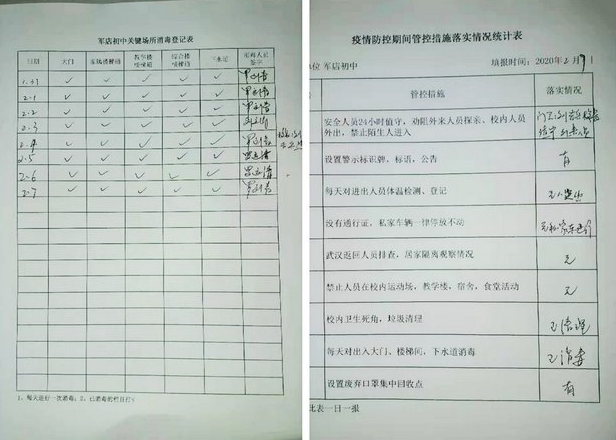 军店初中关键场所消毒登记表
日期 大门 教学楼楼梯 综合楼 下水道 签字
1.31 ✓ ✓ ✓ ✓ ✓
2.1 ✓ ✓ ✓ ✓ ✓
2.2 ✓ ✓ ✓ ✓ ✓
2.3 ✓ ✓ ✓ ✓ ✓
2.4 ✓ ✓ ✓ ✓ ✓
2.5 ✓ ✓ ✓ ✓ ✓
2.6 ✓ ✓ ✓ ✓ ✓
2.7 ✓ ✓ ✓ ✓ ✓
1、每天进行一次消毒;2、已消毒的栏目打✓
疫情防控期间管控措施落实情况统计表
单位 军店初中 填报时间:2020年2月7日
管控措施 落实情况
安全人员24小时值守,劝阻外来人员探亲、校内人员
外出,禁止陌生人进入
设置警示标识牌、标语、公告 有
每天对进出人员体温检测、登记
没有通行证,私家车辆一律停放不动
武汉返回人员排查,居家隔离观察情况 无
禁止人员在校内运动场,教学楼,宿舍,食堂活动 无
校内卫生死角,垃圾清理 已清理
每天对出入大门、楼梯间,下水道消毒 已消毒
设置废弃口罩集中回收点 有
此表一日一报